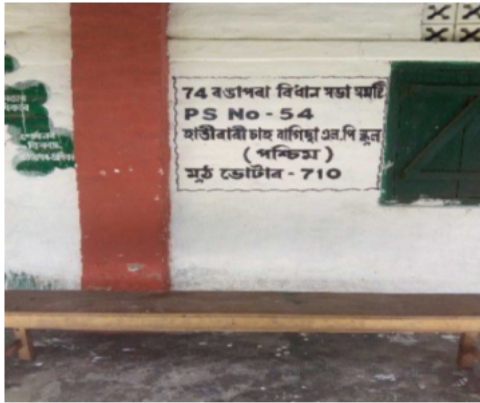 74 ৰঙাপৰা বিধান সভা সমষ্টি
PS No - 54
হাতীবাৰী চাহ বাগিছা এল.পি স্কুল
(পশ্চিম)
মুঠ ভোটাৰ - 710